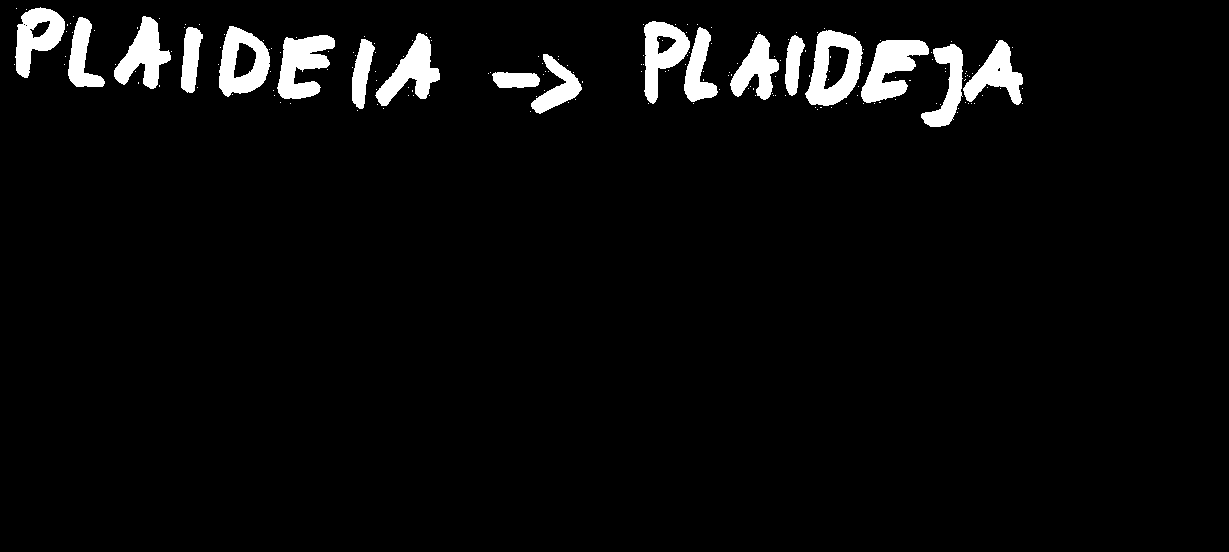 PLAIDEIA -> PLAIDEJA